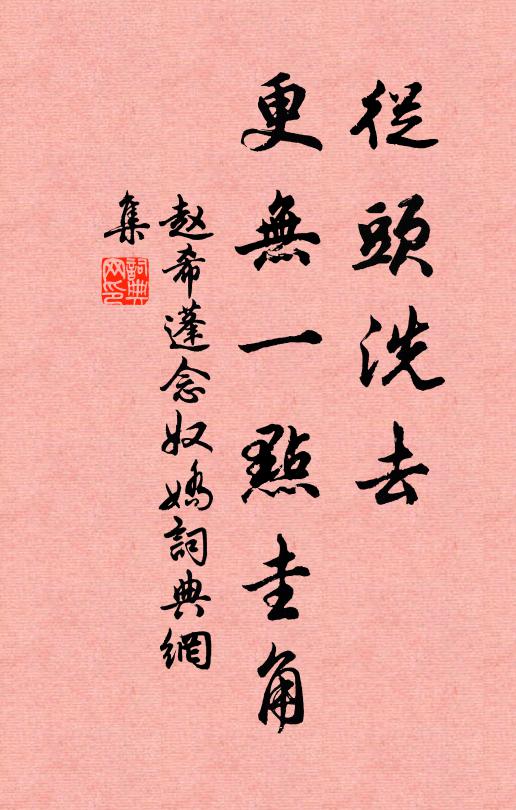 從頭洗去
更無一點圭角
赵希蓬念奴嬌詞典網
集
詞典
网印